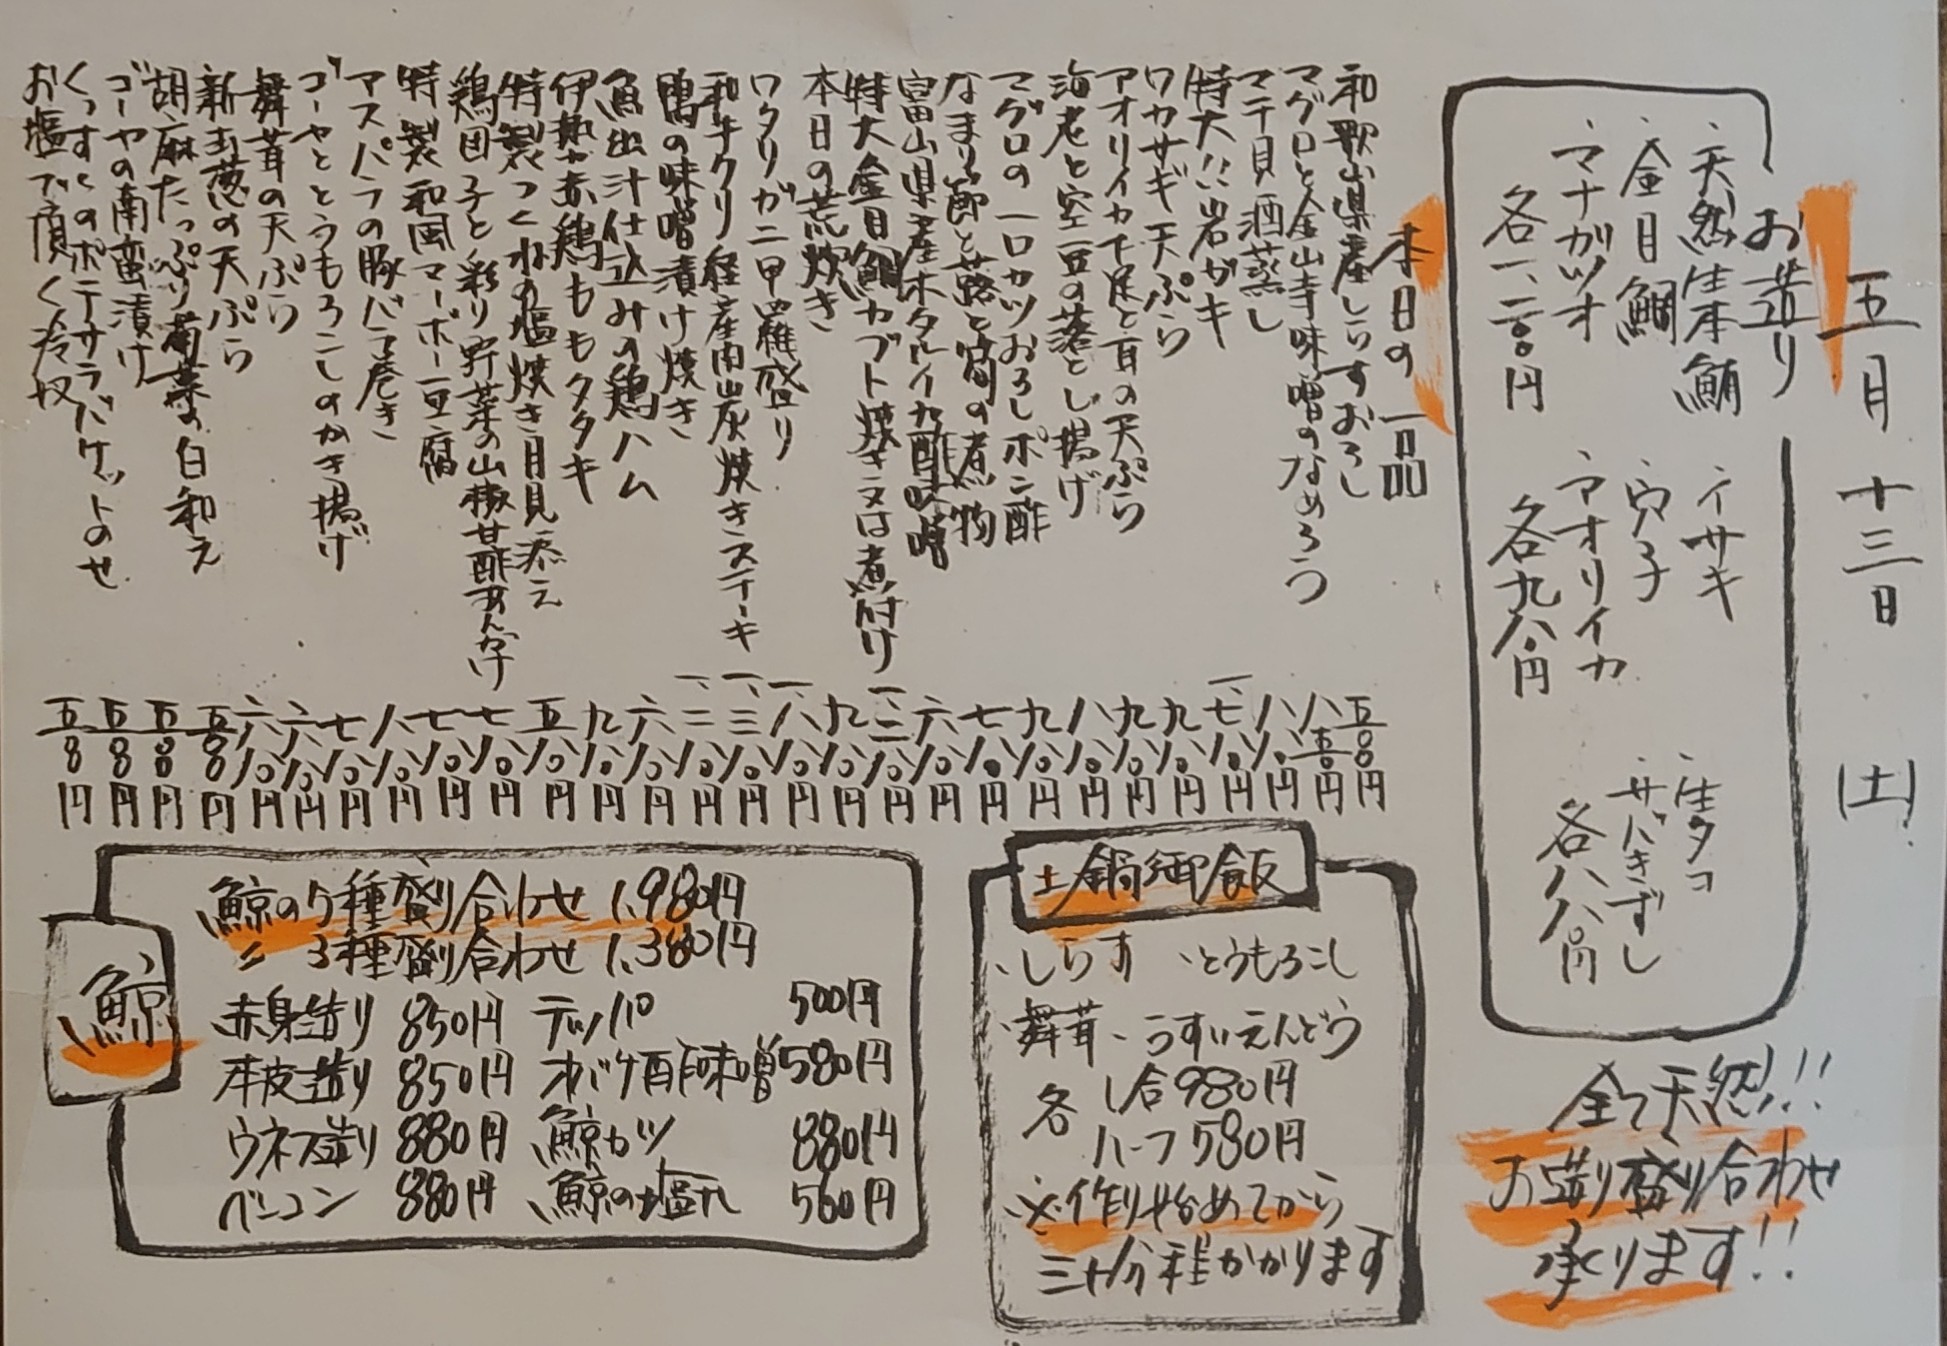 五月十三日(土)
お造り
・天然生本鮪
・金目鯛
・マナガツオ
各一、二〇〇円
・イサキ
・穴子
・アオリイカ
各九八〇円
・生タコ
・サバきずし
各八八〇円
全て天然!!
お造り盛り合わせ
承ります!!
本日の一品
和歌山県産しらすおろし 五〇〇円
マグロと金山寺味噌のなめろう 八五〇円
マテ貝酒蒸し 八八〇円
特大!!岩ガキ 一、七八〇円
ワカサギ天ぷら 九八〇円
アオリイカ下足と耳の天ぷら 九八〇円
海老と空豆の落とし揚げ 八八〇円
マグロの一口カツおろしポン酢 九八〇円
なまり節と蕗と筍の煮物 七八〇円
富山県産ホタルイカ酢味噌 六八〇円
特大金目鯛カブト焼き又は煮付け 一、二八〇円
本日の荒炊き 九八〇円
ワタリガニ甲羅盛り 一、八八〇円
和牛クリ 経産肉山炭焼きステーキ 一、三八〇円
鴨の味噌漬け焼き 一、二八〇円
魚出汁仕込みの鶏ハム 六八〇円
伊勢赤鶏ももタタキ 九八〇円
特製つくねの塩焼き月見添え 五八〇円
鶏団子と彩り野菜の山椒甘酢あんかけ 七八〇円
特製和風マーボー豆腐 七八〇円
アスパラの豚バラ巻き 八八〇円
ゴーヤととうもろこしのかき揚げ 七八〇円
舞茸の天ぷら 六八〇円
新玉葱の天ぷら 六八〇円
胡麻たっぷり菊菜の白和え 五〇〇円
ゴーヤの南蛮漬け 五〇〇円
ポテサラバケットのせ 五〇〇円
お塩で頂く冷奴 五〇〇円
土鍋御飯
・しらす ・とうもろこし
・舞茸 ・うすいえんどう
各 1合980円
ハーフ580円
※作り始めてから
三十分程かかります
鯨
鯨の5種盛り合わせ 1,980円
〃 3種盛り合わせ 1,380円
赤身造り 850円 テッパ 500円
本皮造り 850円 オバケ酢味噌 580円
ウネス造り 880円 鯨カツ 880円
ベーコン 880円 鯨の塩 560円